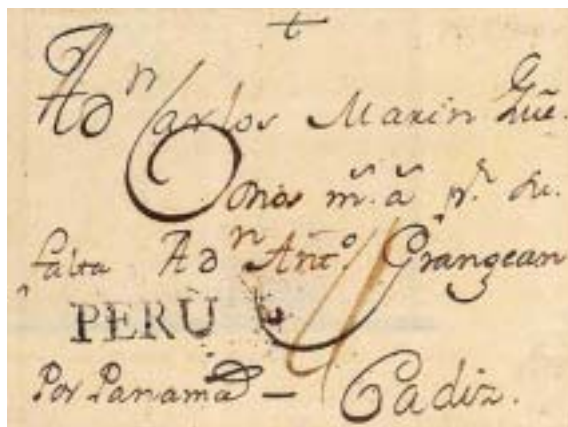 †
A Dn Carlos Marin Gue
ms. as. pr. su.
falta A Dn Anto. Grangean
PERU
Por Panama — Cadiz.